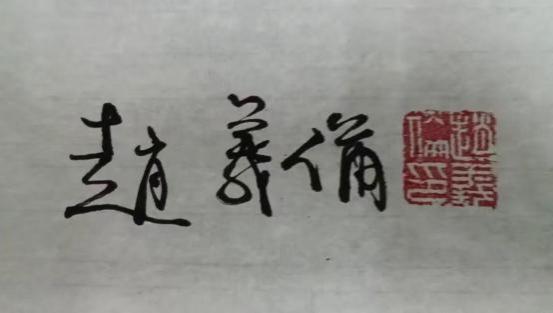 趙義倫
趙義
倫印